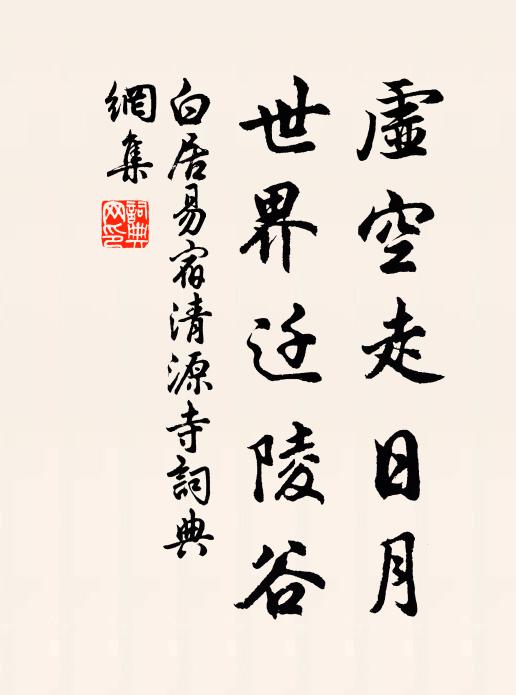 虛空走日月
世界迁陵谷
白居易宿清源寺詞典
網集
詞典
网印